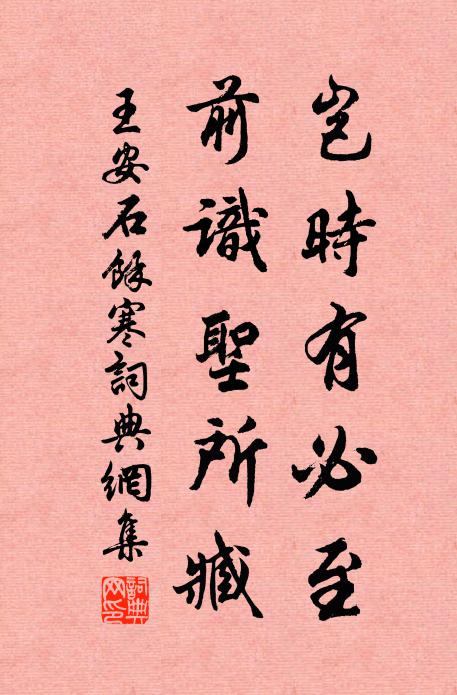 豈時有必至
前識聖所臧
王安石餘寒詞典網集
詞典網印